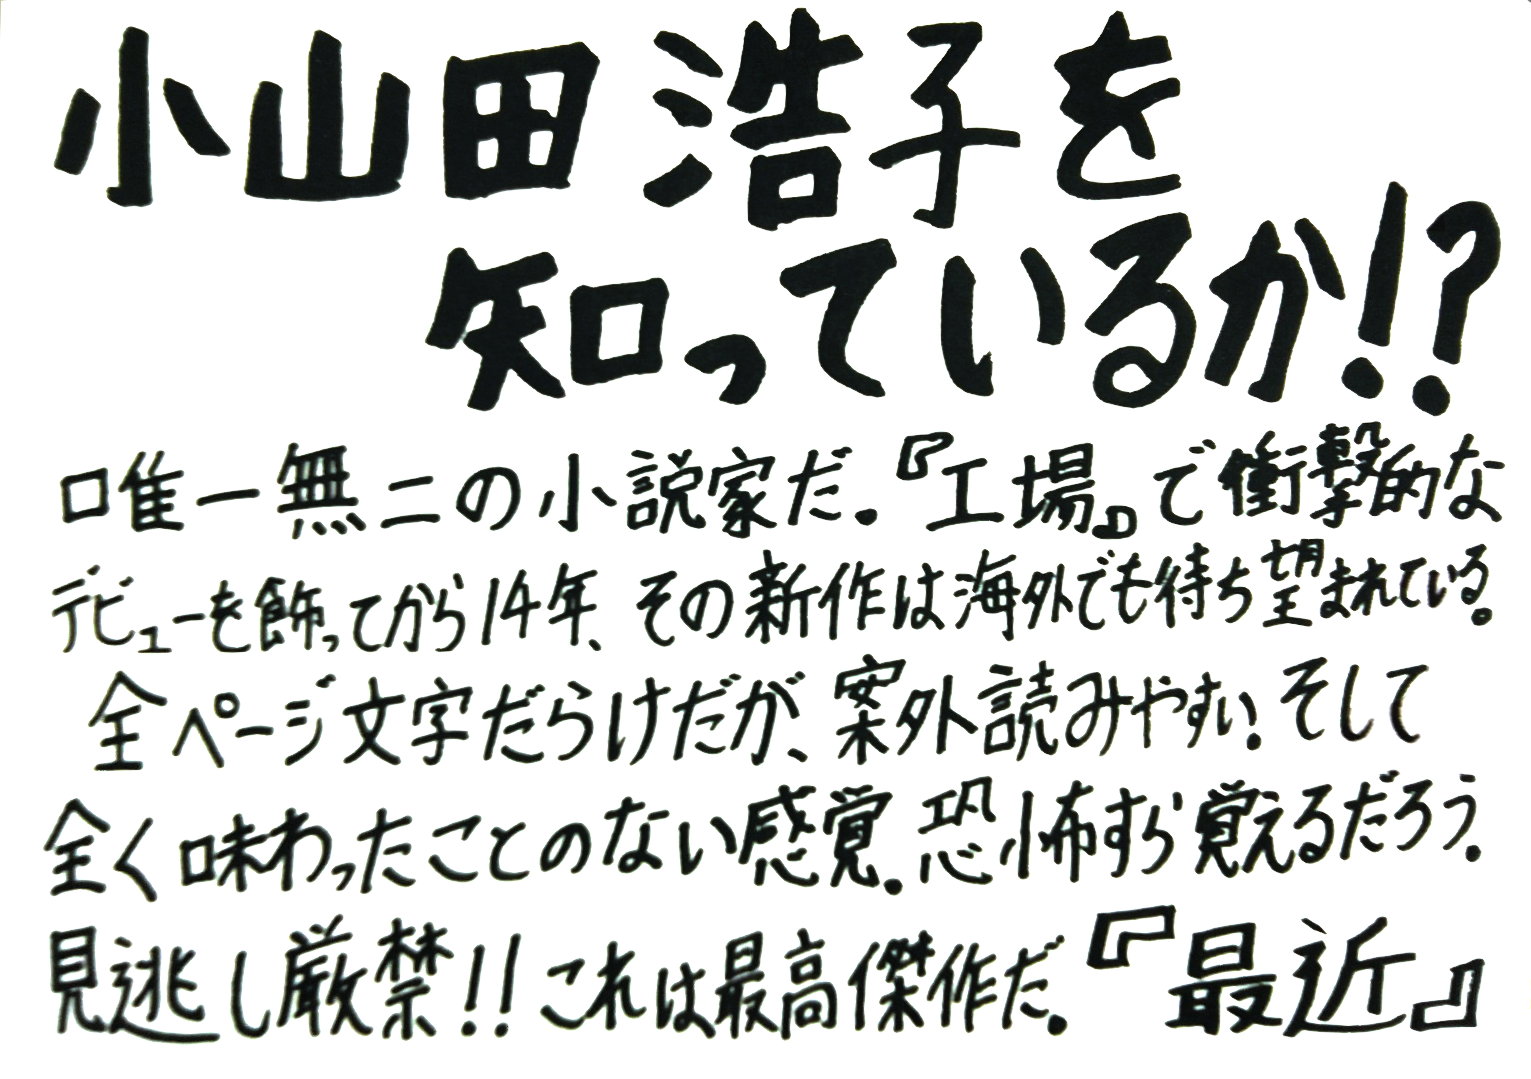 小山田浩子を
知っているか!?
唯一無二の小説家だ。『工場』で衝撃的な
デビューを飾ってから14年、その新作は海外でも待ち望まれている。
全ページ文字だらけだが、案外読みやすい。そして
全く味わったことのない感覚。恐怖すら覚えるだろう。
見逃し厳禁!!これは最高傑作だ。『最近』